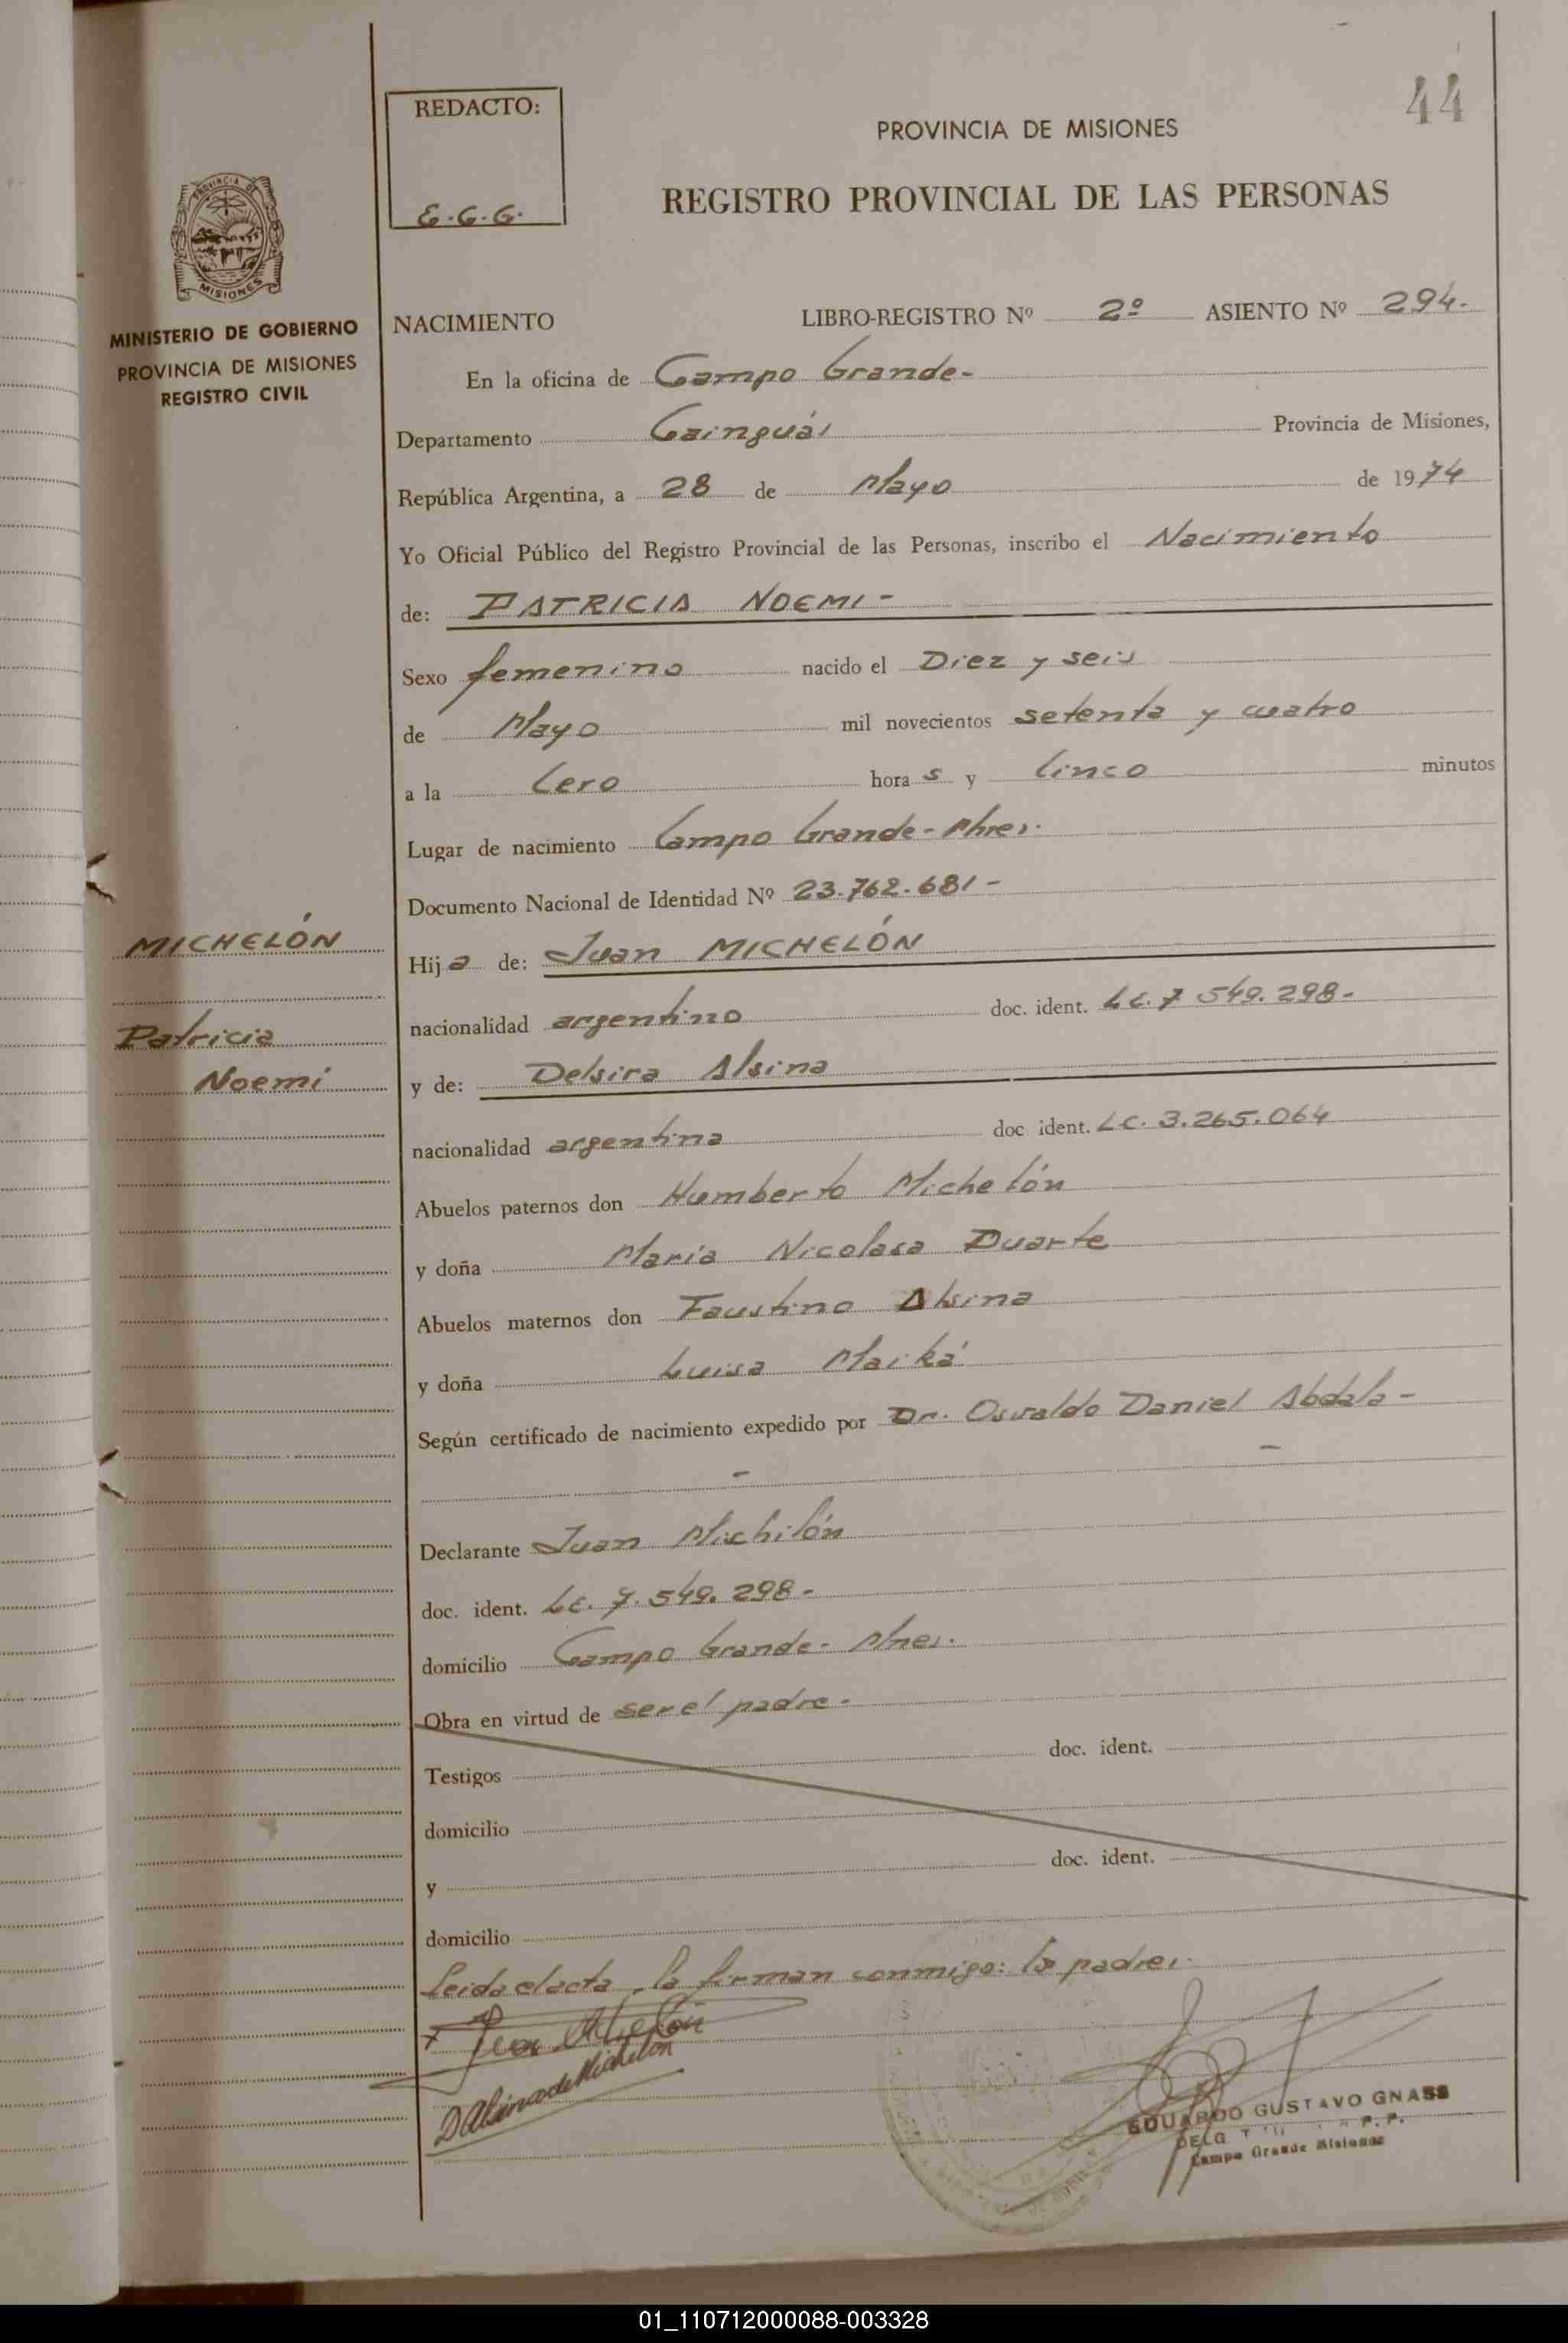 44
REDACTO:
E.G.G.
PROVINCIA DE MISIONES
REGISTRO PROVINCIAL DE LAS PERSONAS
PROVINCIA DE
MISIONES
MINISTERIO DE GOBIERNO
PROVINCIA DE MISIONES
REGISTRO CIVIL
NACIMIENTO LIBRO-REGISTRO Nº 2º ASIENTO Nº 294-
En la oficina de Campo Grande-
Departamento Cainguás Provincia de Misiones,
República Argentina, a 28 de Mayo de 1974
Yo Oficial Público del Registro Provincial de las Personas, inscribo el Nacimiento
de: PATRICIA NOEMI-
Sexo femenino nacido el Diez y seis
de Mayo mil novecientos setenta y cuatro
a la Cero horas y Cinco minutos
Lugar de nacimiento Campo Grande-Mnes.
Documento Nacional de Identidad Nº 23.762.681-
MICHELÓN
Hija de: Juan MICHELÓN
nacionalidad argentino doc. ident. L.E. 7 549.298-
Patricia
Noemi
y de: Delsira Alsina
nacionalidad argentina doc ident. L.C. 3.265.064
Abuelos paternos don Humberto Michelón
y doña María Nicolasa Duarte
Abuelos maternos don Faustino Alsina
y doña Luisa Maiká
Según certificado de nacimiento expedido por Dr. Osvaldo Daniel Abdala-
Declarante Juan Michilón
doc. ident. L.E. 7.549.298-
domicilio Campo Grande- Mnes.
Obra en virtud de ser el padre-
Testigos doc. ident.
domicilio
y doc. ident.
domicilio
Leida el acta, la firman conmigo: los padres.
Juan Michelón
D Alsina de Michelón
EDUARDO GUSTAVO GNASS
Campo Grande Misiones
01_110712000088-003328